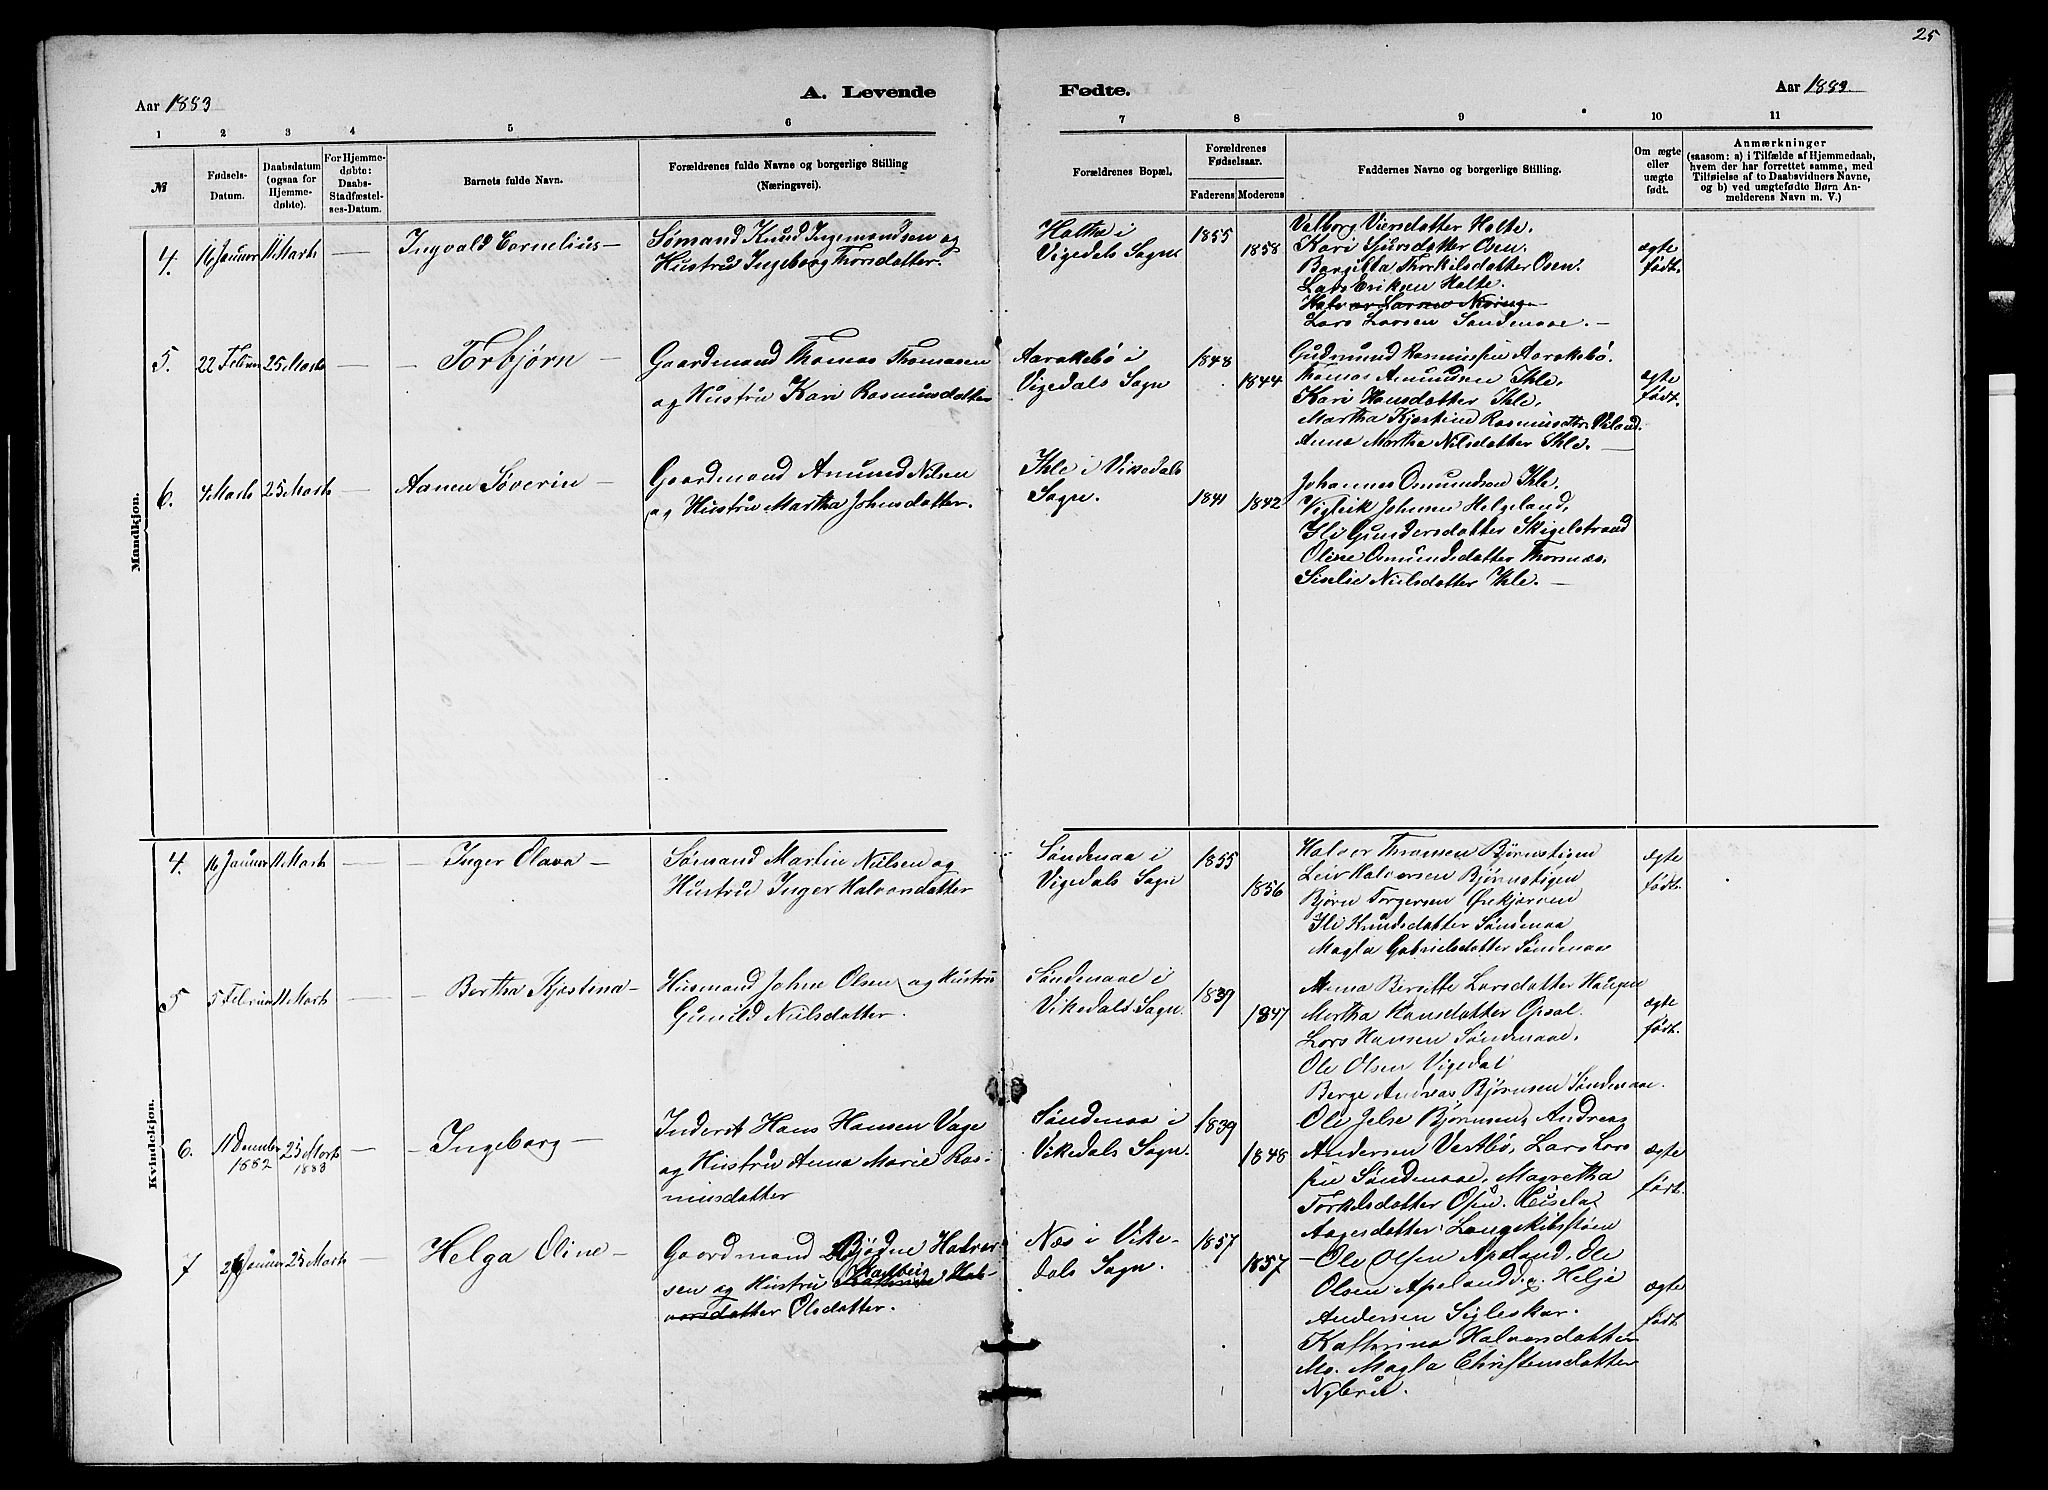 25
Aar 1883
A. Levende
Fødte.
Aar 1883
1 2 3 4 5 6 7 8 9 10 11
№
Fødsels-
Datum.
Daabsdatum
(ogsaa for
Hjemme-
døbte).
For Hjemme-
døbte:
Daabs-
Stadfæstel-
ses-Datum.
Barnets fulde Navn.
Forældrenes fulde Navne og borgerlige Stilling
(Næringsvei).
Forældrenes Bopæl,
Forældrenes
Fødselsaar.
Faderens Moderens
Faddernes Navne og borgerlige Stilling.
Om ægte
eller
uægte
født.
Anmærkninger
(saasom: a) i Tilfælde af Hjemmedaab,
hvem der har forrettet samme, med
Tilføielse af to Daabsvidners Navne,
og b) ved uægtefødte Børn An-
melderens Navn m. V.)
Mandkjøn.
4. 16 Januer 11 Marts — Ingvald Cornelius —
Sømand Knud Ingemondsen og
Hustru Ingeborg Thorsdatter.
Halte i
Vigedals Sagn
1855
1858
Valborg Viersdatter Halte.
Kari Sjursdatter Osen.
Bargitta Thorkilsdatter Osen.
Lars Eriksen Halte.
Lars Larsen Søndenaae. —
ægte
født.
5. 22 Februer 25 Marts — Torbjørn —
Gaardmand Thomas Thomasen
og Hustru Kari Rasmusdatter
Aarakebø i
Vigedals Sagn
1848
1844
Gudmund Rasmussen Aarakebø.
Thomas Amundsen Ihle.
Kari Hansdatter Ihle.
Martha Kjestine Rasmusdtr. Viland.
Anna Martha Nilsdatter Ihle. —
ægte
født.
6. 4 Marts 25 Marts — Aamen Søverin —
Gaardmand Amund Nilsen
og Hustru Martha Johnsdatter.
Ihle i Vikedals
Sagn.
1841
1842
Johannes Omundsen Ihle.
Vigleik Johnsen Helgeland,
Ili Gundersdatter Skigelstrand
Oline Omundsdatter Thornæs.
Siselie Nielsdatter Ihle. —
Kvindekjøn.
4. 16 Januer 11 Marts — Inger Olava —
Sømand Martin Nielsen og
Hustru Inger Halvorsdatter
Søndenaa i
Vigedals Sagn
1855
1856
Halvor Thomsen Bjørnstigen
Leiv Halvorsen Bjørnstigen
Bjørn Torgersen Ørekjærnen
Ili Knudsdatter Søndenaa
Magla Gabrielsdatter Søndenaae
ægte
født.
5 5 Februer 11 Marts — Bertha Kjestina —
Husmand John Olsen og Hustru
Gunild Nielsdatter.
Søndenaae i
Vikedals Sagn.
1839
1847
Anna Beritte Larsdatter Haugen
Martha Hansdatter Opsal.
Lars Hansen Søndenaae.
Ole Olsen Vigedal
Berge Andreas Bjørnsen Søndenaae.
ægte
født.
6. 11 December
1882
25 Marts
1883
— Ingeborg —
Inderst Hans Hansen Vage
og Hustru Anna Marie Ras-
musdatter
Søndenaa i
Vikedals Sagn.
1839
1848
Ole Jelse Bjørnsen, Andreas
Andersen Vestbø, Lars Lars
sen Søndenaae, Magretha
Torkelsdatter Osen. Cisela
Aagesdatter Langeskibsstøen
ægte
født.
7 Januer 25 Marts Helga Oline —
Gaardmand Bjødne Halvor-
sen og Hustru Halvorsdatter Olsdatter.
Næs i Vike-
dals Sagn.
1857
1857
— Ole Olsen Apeland, Ole
Olsen Apeland d.y. Helje
Andersen Sigleskar.
Kathrina Halvorsdatter
Magla Christensdatter
Nybru.
ægte
født